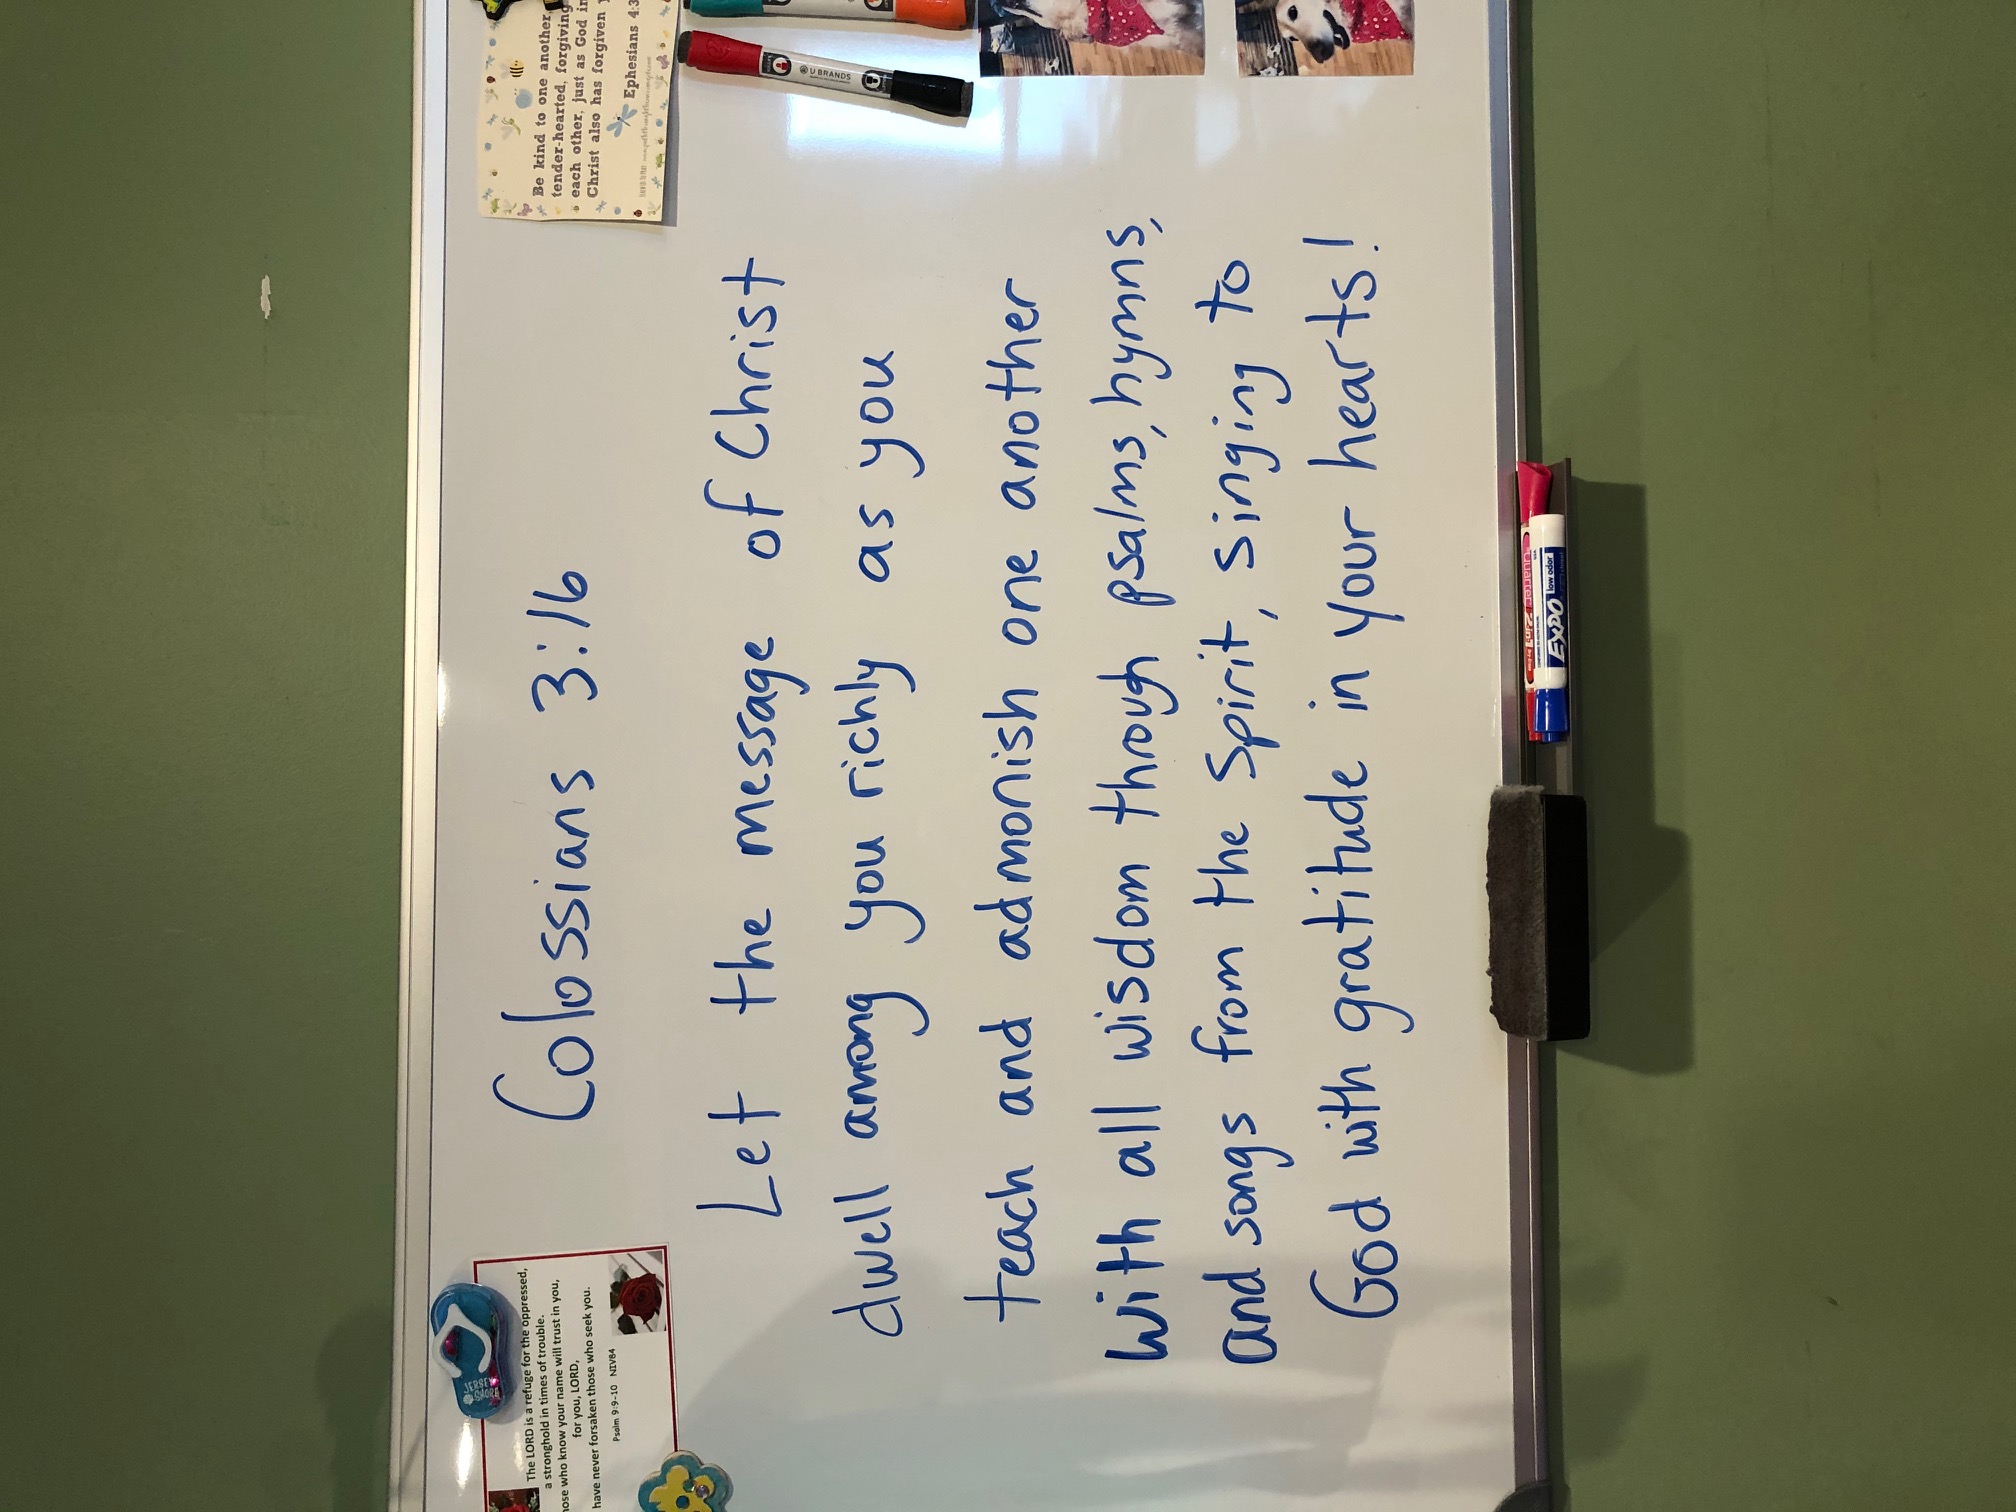 Colossians 3:16
Let the message of Christ
dwell among you richly as you
teach and admonish one another
with all wisdom through psalms, hymns,
and songs from the Spirit, singing to
God with gratitude in your hearts!
The LORD is a refuge for the oppressed,
a stronghold in times of trouble.
who know your name will trust in you,
for you, LORD,
have never forsaken those who seek you.
Psalm 9:9-10 NIV84
JERSEY
SHORE
Be kind to one another,
tender-hearted, forgiving
each other, just as God in
Christ also has forgiven
Ephesians 4:3
U BRANDS
EXPO
low odor